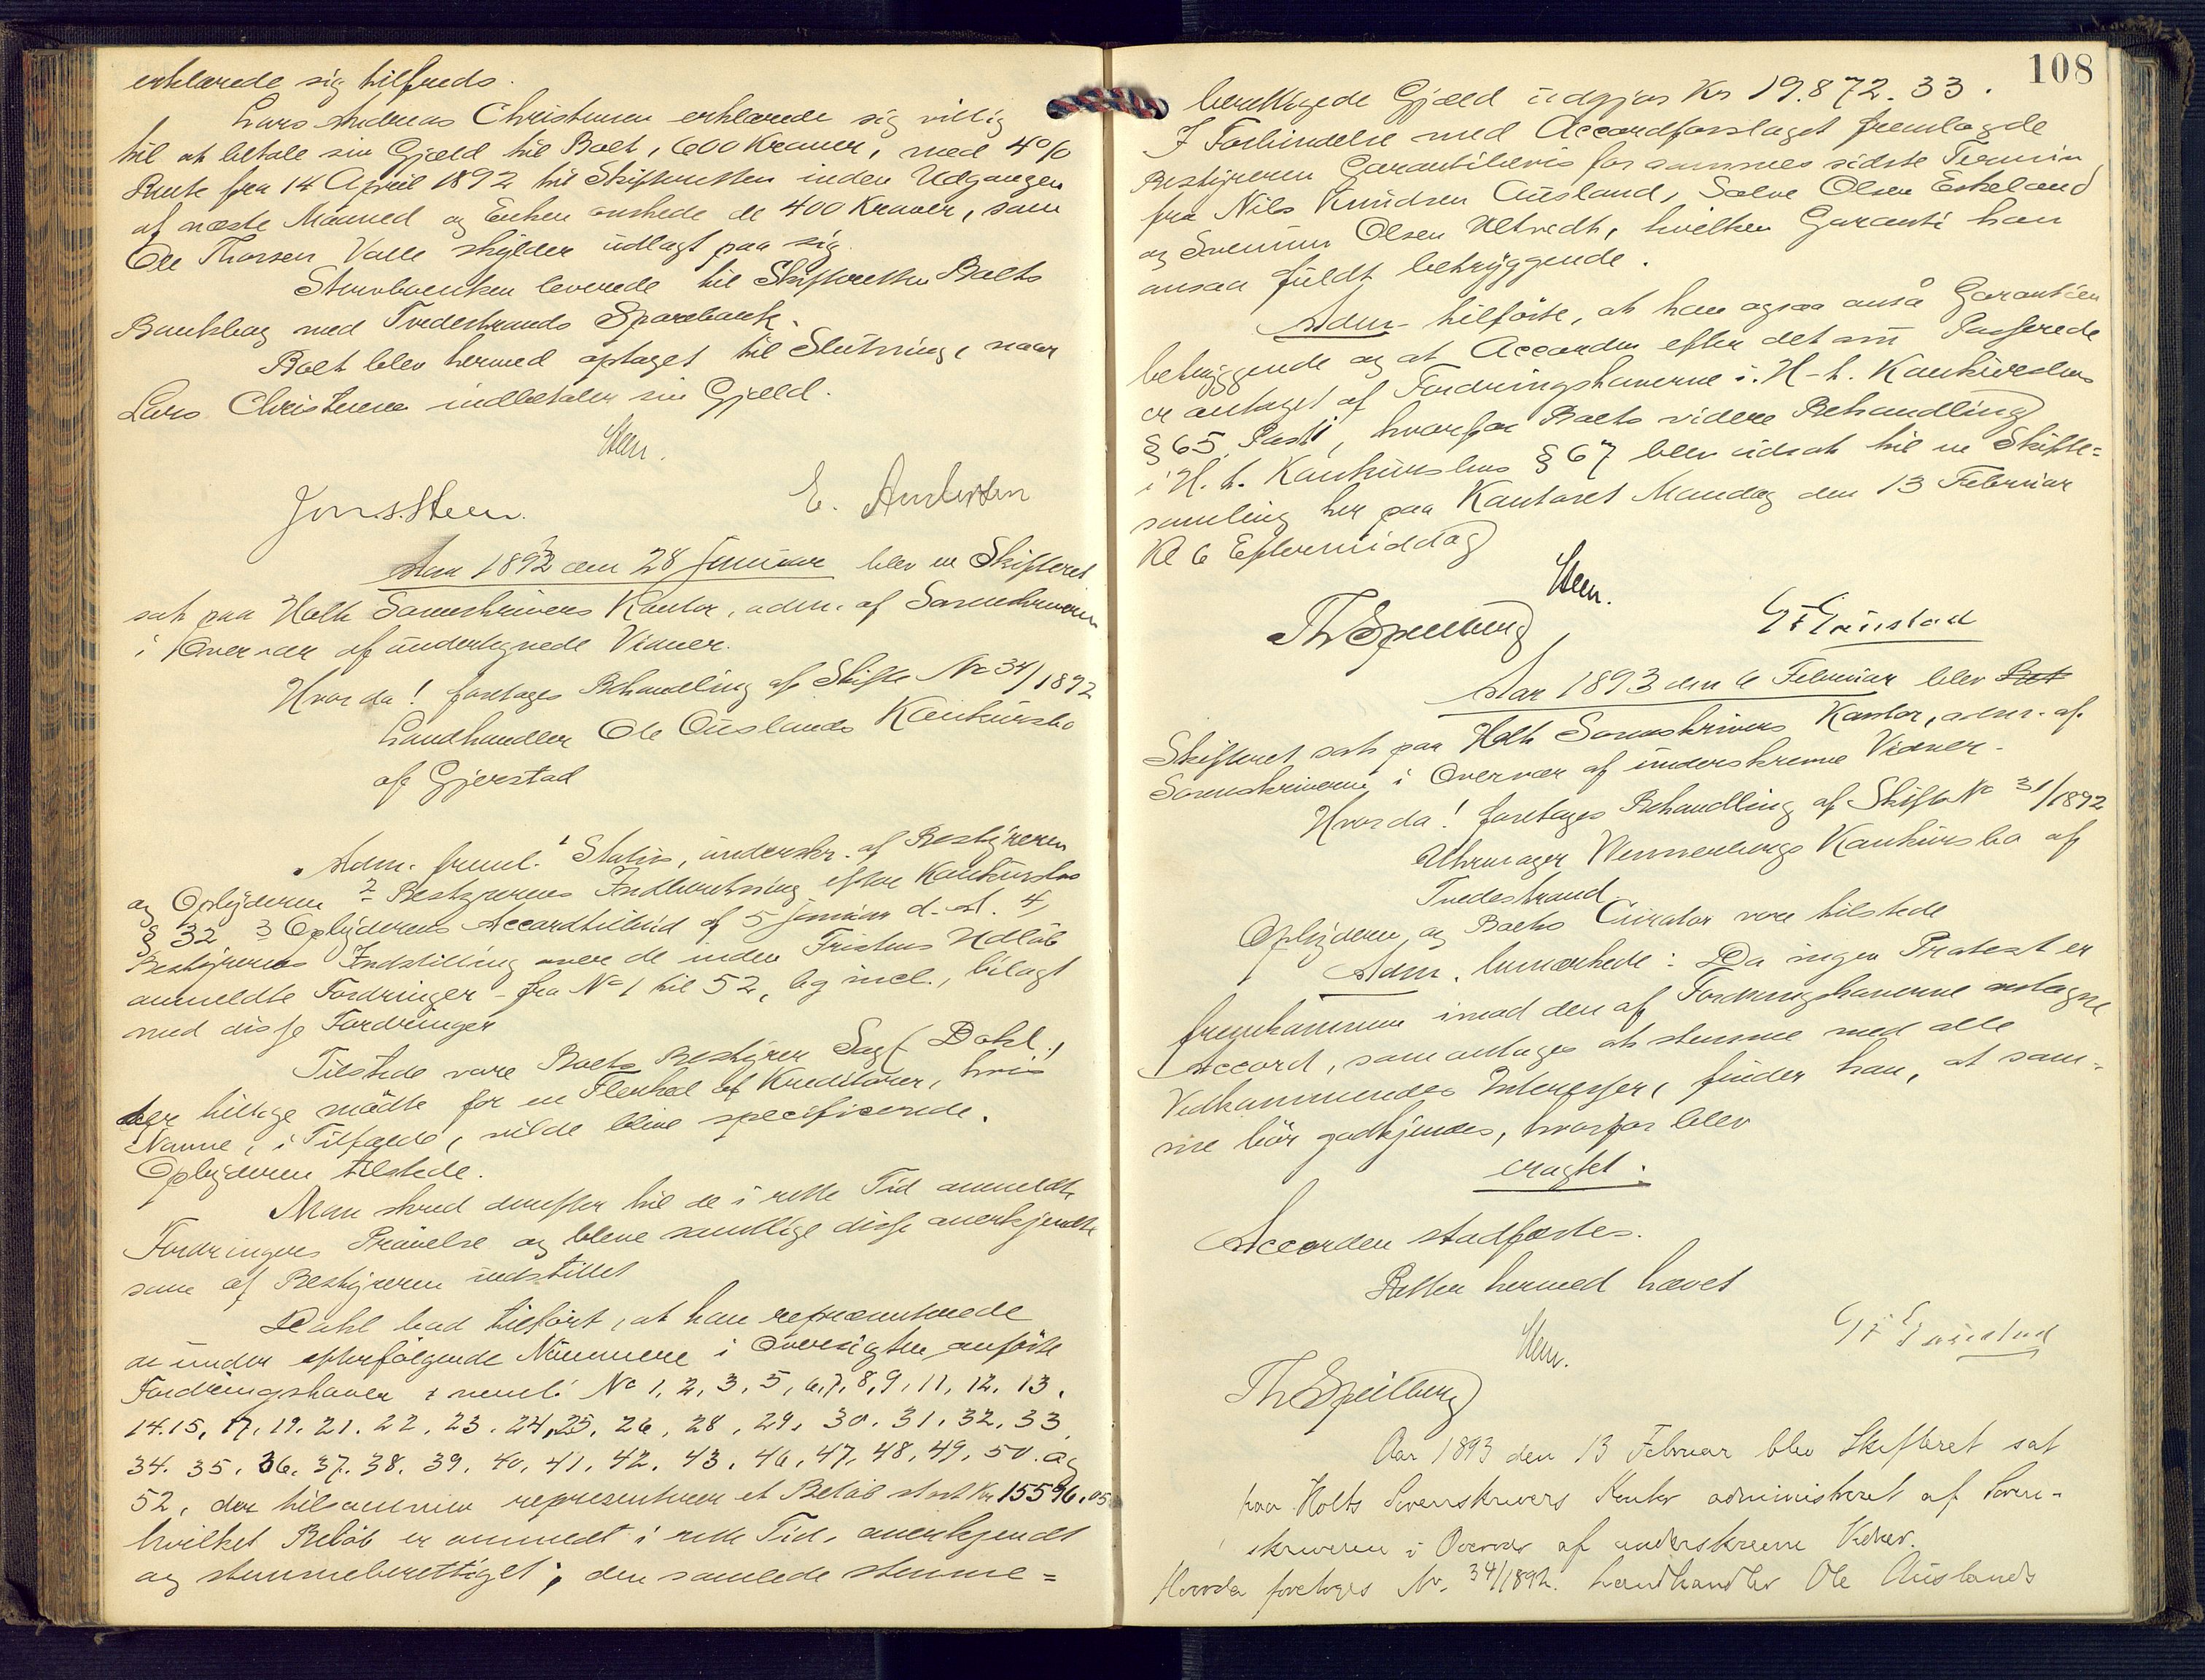 erklærede sig tilfreds.
Lars Andreas Christensen erklærede sig villig
til at betale sin Gjæld til Boet, 600 Kroner, med 4%
Rente fra 14 April 1892 til Skifteretten inden Udgangen
af næste Maaned og Enken ønskede de 400 Kroner, som
Ole Thorsen Valle skylder udlagt paa sig.
Stervboenken leverede til Skifteretten Boets
Bankbog med Tvedestrands Sparebank.
Boet blev hermed optaget til Slutning, naar
Lars Christensen indbetaler sin Gjæld.
Steen.
Jon S. Steen. E. Andersen
Aar 1893 den 28 Januar blev en Skifteret
sat paa Holts Sorenskrivers Kontor, adm. af Sorenskriveren
i Overvær af undertegnede Vidner.
Hvorda! foretages Behandling af Skifte No 34/1892
Landhandler Ole Auslands Konkursbo
af Gjerstad
Adm. freml. 1 Status, underskr. af Bestyreren
og Opbyderen 2 Bestyrerens Indberetning efter Konkurslov
§ 32 3 Opbyderens Accordtilbud af 5 Januar d. A. 4,
Bestyrerens Indstilling over de inden Fristens Udløb
anmeldte Fordringer - fra No 1 til 52, beg incl., bilagt
med disse Fordringer
Tilstede vare Boets Bestyrer Sagf. Dahl,
der tillige mødte for en Flerhed af Kreditorer, hvis
Navne, i Tilfælde, vilde blive specificerede.
Opbyderen tilstede.
Man skred derefter til de i rette Tid anmeldte
Fordringers Prøvelse og bleve samtlige disse anerkjendte
som af Bestyreren indstillet
Dahl bad tilført, at han repræsenterede
de under efterfølgende Nummere i Oversigten anførte
Fordringshaver : nemli No 1, 2, 3, 5, 6, 7, 8, 9, 11, 12. 13.
14. 15, 17, 19. 21. 22. 23. 24, 25, 26, 28, 29. 30. 31. 32. 33.
34. 35. 36. 37. 38. 39. 40. 41. 42. 43. 46, 47, 48, 49, 50. og
52, der tilsammen representerer et Beløb stort Kr 15596.05
hvilket Beløb er anmeldt i rette Tid, anerkjendt
og stemmeberettiget; den samlede stemme=
108
berettigede Gjæld udgjør Kr 19.872.33.
I Forbindelse med Accordforslaget fremlagde
Bestyreren Garantibevis for sammes sidste Termin
fra Nils Knudsen Ausland, Salve Olsen Eskeland
og Svennum Olsen Ulltvedt, hvilken Garanti han
ansaa fuldt betryggende.
Adm tilførte, at han ogsaa anså Garantien
betryggende og at Accorden efter det nu Passerede
er antaget af Fordringshaverne i. H-t. Konkurslovs
§ 65. Post 1, hvorfor Boets videre Behandling
i H. t. Konkurslovs § 67 blev udsat til en Skifte=
samling her paa Kontoret Mandag den 13 Februar
Kl 6 Eftermiddag
Steen.
Th Speilberg
Aar 1893 den 6 Februar blev Ret
Skifteret sat paa Holts Sorenskrivers Kontor, adm. af
Sorenskriveren i Overvær af underskrevne Vidner.
Hvorda! foretages Behandling af Skifte No 31/1892
Uhrmager Wennerbergs Konkursbo af
Tvedestrand
Opbyderen og Boets Curator vare tilstede
Adm. bemærkede: Da ingen Protest er
fremkommen imod den af Fordringshaverne antagne
Accord, som antages at stemme med alle
Vedkommendes Interesser, finder han, at sam-
me bør godkjendes, hvorfor blev
eragtet:
Accorden stadfæstes.
Retten hermed hævet
Steen.
Th Speilberg
Aar 1893 den 13 Februar blev Skifteret sat
paa Holts Sorenskrivers Kontor administreret af Soren-
skriveren i Overvær af underskrevne Vidner.
Hvorda foretages No. 34/1892. Landhandler Ole Auslands